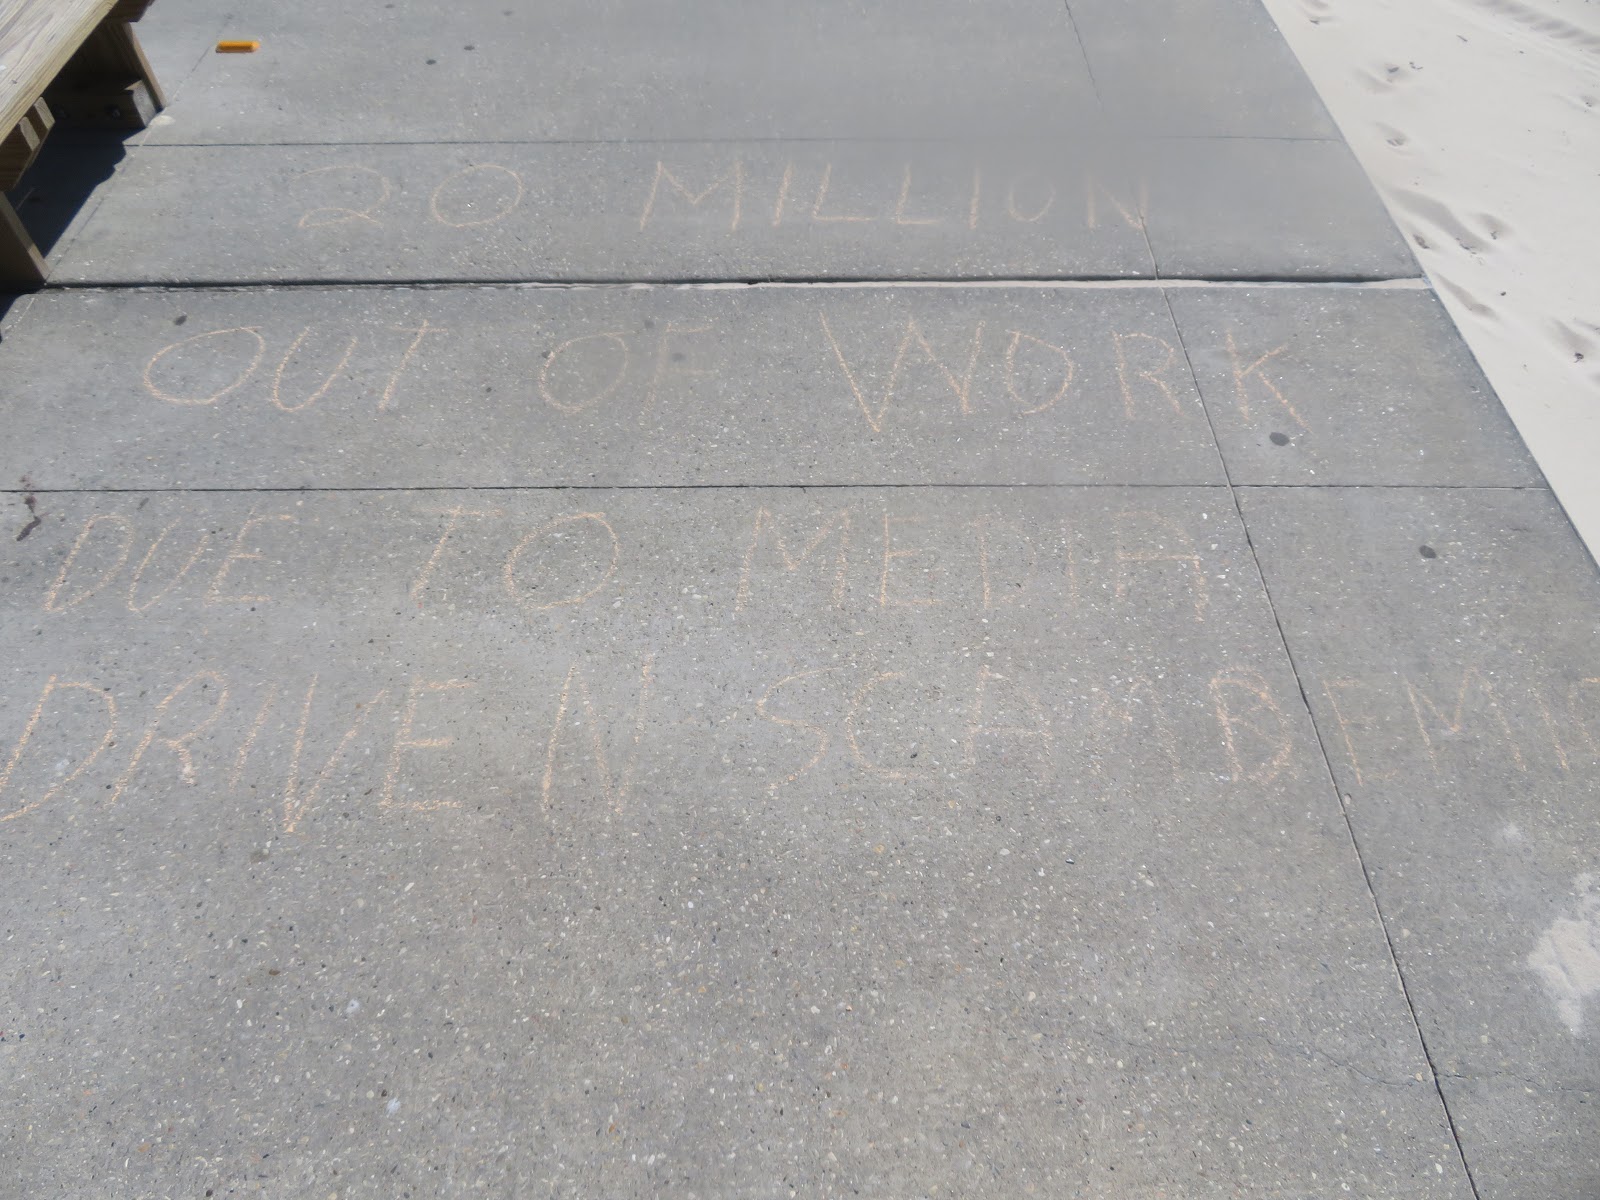 20 MILLION
OUT OF WORK
DUE TO MEDIA
DRIVEN